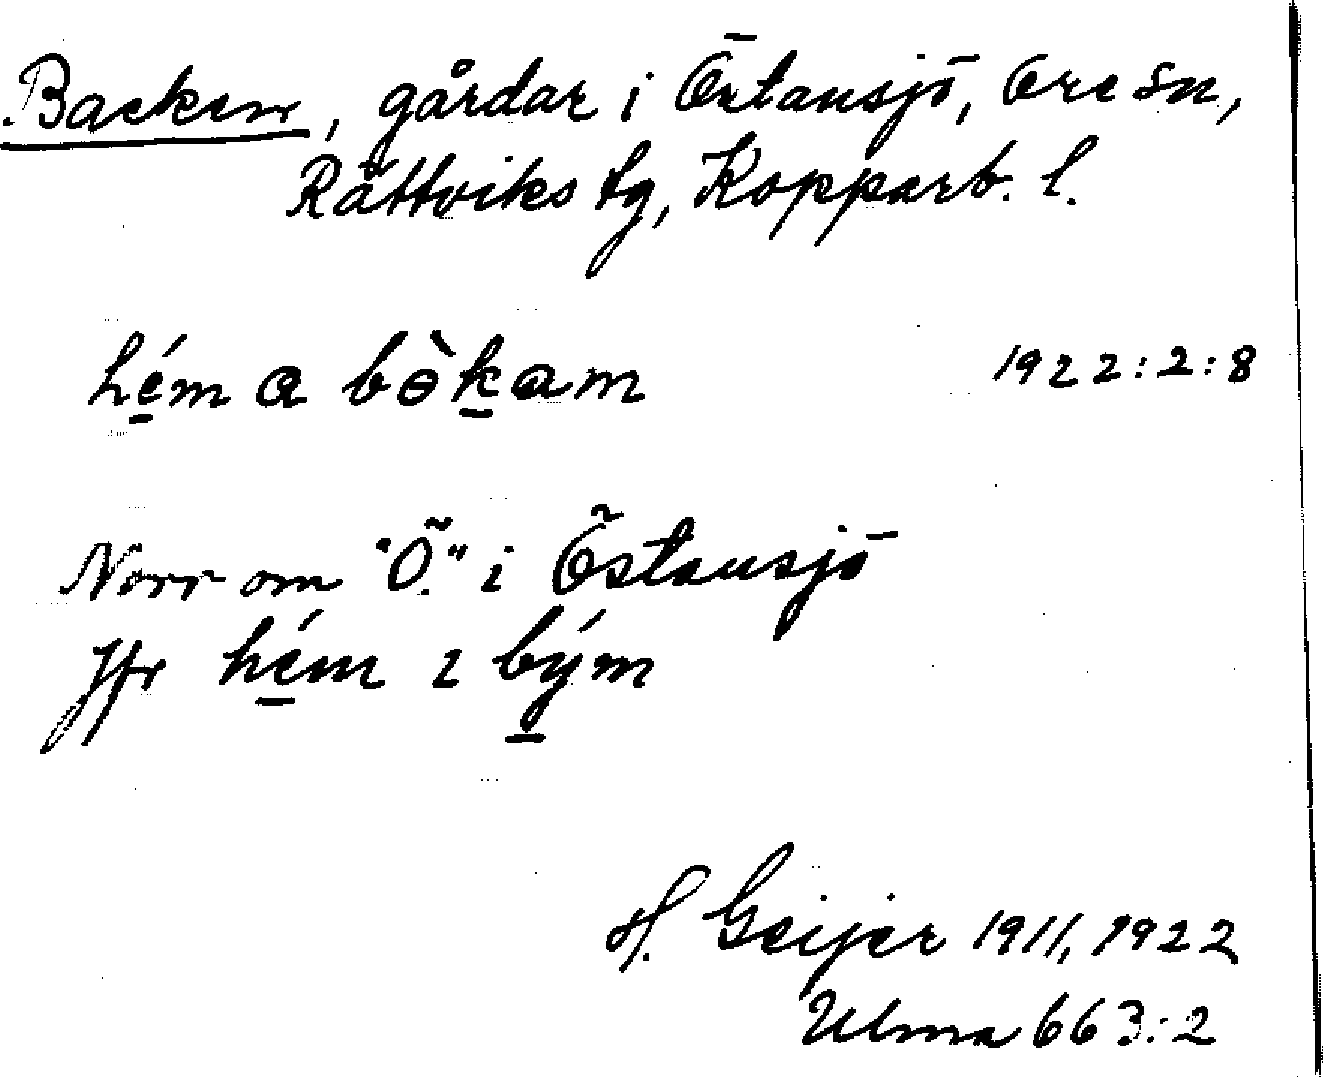 Backen, gårdar i Östansjö, Ore sn,
Rättviks tg, Kopparb. l.
hém a bɵ̀kam 1922:2:8
Norr om "Ö." i Östansjö
Jfr hém ı bým
H. Geijer 1911, 1922
Ulma 663:2